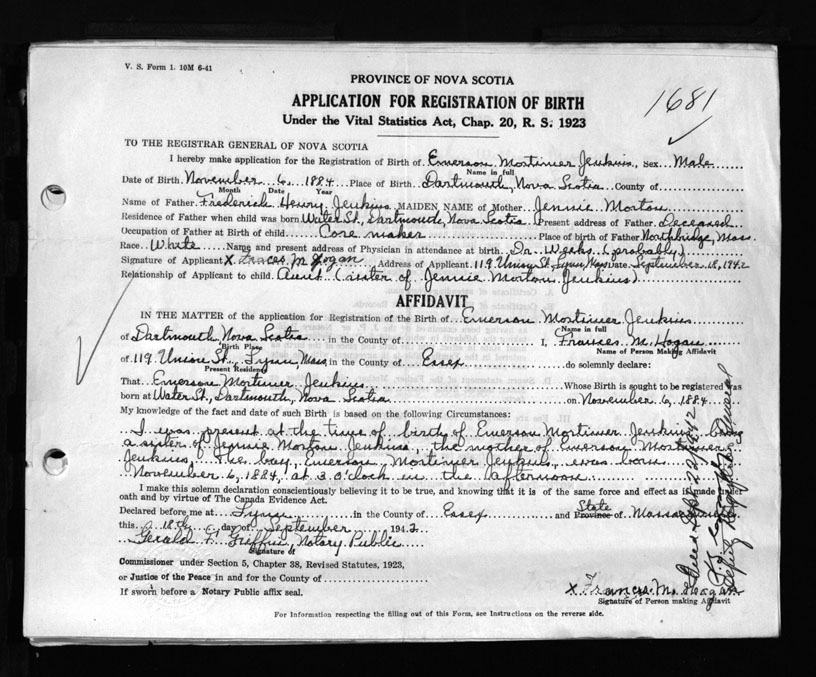 V. S. Form 1. 10M 6-41
PROVINCE OF NOVA SCOTIA
APPLICATION FOR REGISTRATION OF BIRTH
1681
Under the Vital Statistics Act, Chap. 20, R. S. 1923
TO THE REGISTRAR GENERAL OF NOVA SCOTIA
I hereby make application for the Registration of Birth of Emerson Mortimer Jenkins, Sex Male
Name in full
Date of Birth November 6, 1884 Place of Birth Dartmouth, Nova Scotia County of
Month Date Year
Name of Father Frederick Henry Jenkins MAIDEN NAME of Mother Jennie Morton
Residence of Father when child was born Water St., Dartmouth, Nova Scotia Present address of Father Deceased
Occupation of Father at Birth of child Core maker Place of birth of Father Northbridge, Mass.
Race White Name and present address of Physician in attendance at birth Dr. Weeks (probably)
Signature of Applicant X Frances M Hogan Address of Applicant 119 Union St., Lynn, Mass Date September 18, 1942
Relationship of Applicant to child Aunt (sister of Jennie Morton Jenkins)
AFFIDAVIT
IN THE MATTER of the application for Registration of the Birth of Emerson Mortimer Jenkins
Name in full
of Dartmouth, Nova Scotia in the County of I, Frances M. Hogan
Birth Place Name of Person Making Affidavit
of 119 Union St., Lynn, Mass, in the County of Essex do solemnly declare:
Present Residence
That Emerson Mortimer Jenkins Whose Birth is sought to be registered was
born at Water St., Dartmouth, Nova Scotia on November 6, 1884
My knowledge of the fact and date of such Birth is based on the following Circumstances:
I was present at the time of birth of Emerson Mortimer Jenkins being
a sister of Jennie Morton Jenkins, the mother of Emerson Mortimer
Jenkins. The boy, Emerson Mortimer Jenkins, was born
November 6, 1884, at 3 o'clock in the afternoon.
I make this solemn declaration conscientiously believing it to be true, and knowing that it is of the same force and effect as if made under
oath and by virtue of The Canada Evidence Act.
State
Declared before me at Lynn in the County of Essex and Province of Massachusetts
this 18th day of September 1942
Gerald F. Griffin, Notary Public
Signature of
Commissioner under Section 5, Chapter 38, Revised Statutes, 1923,
or Justice of the Peace in and for the County of
If sworn before a Notary Public affix seal.
X Frances M. Hogan
Signature of Person making Affidavit
For Information respecting the filling out of this Form, see Instructions on the reverse side.
Deputy Registrar General